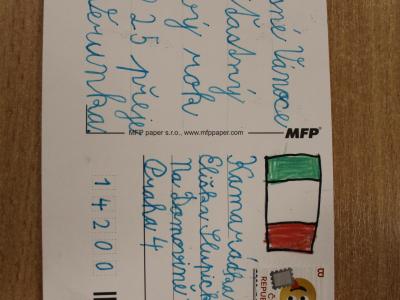 sné Vánoce
šťastný
vý rok
25 přeje
erunka
MFP paper s.r.o., www.mfppaper.com
MFP
Kamarádka
Eliška Slupick
Na Domovině
Praha 4
14200
Č
REPUB
B